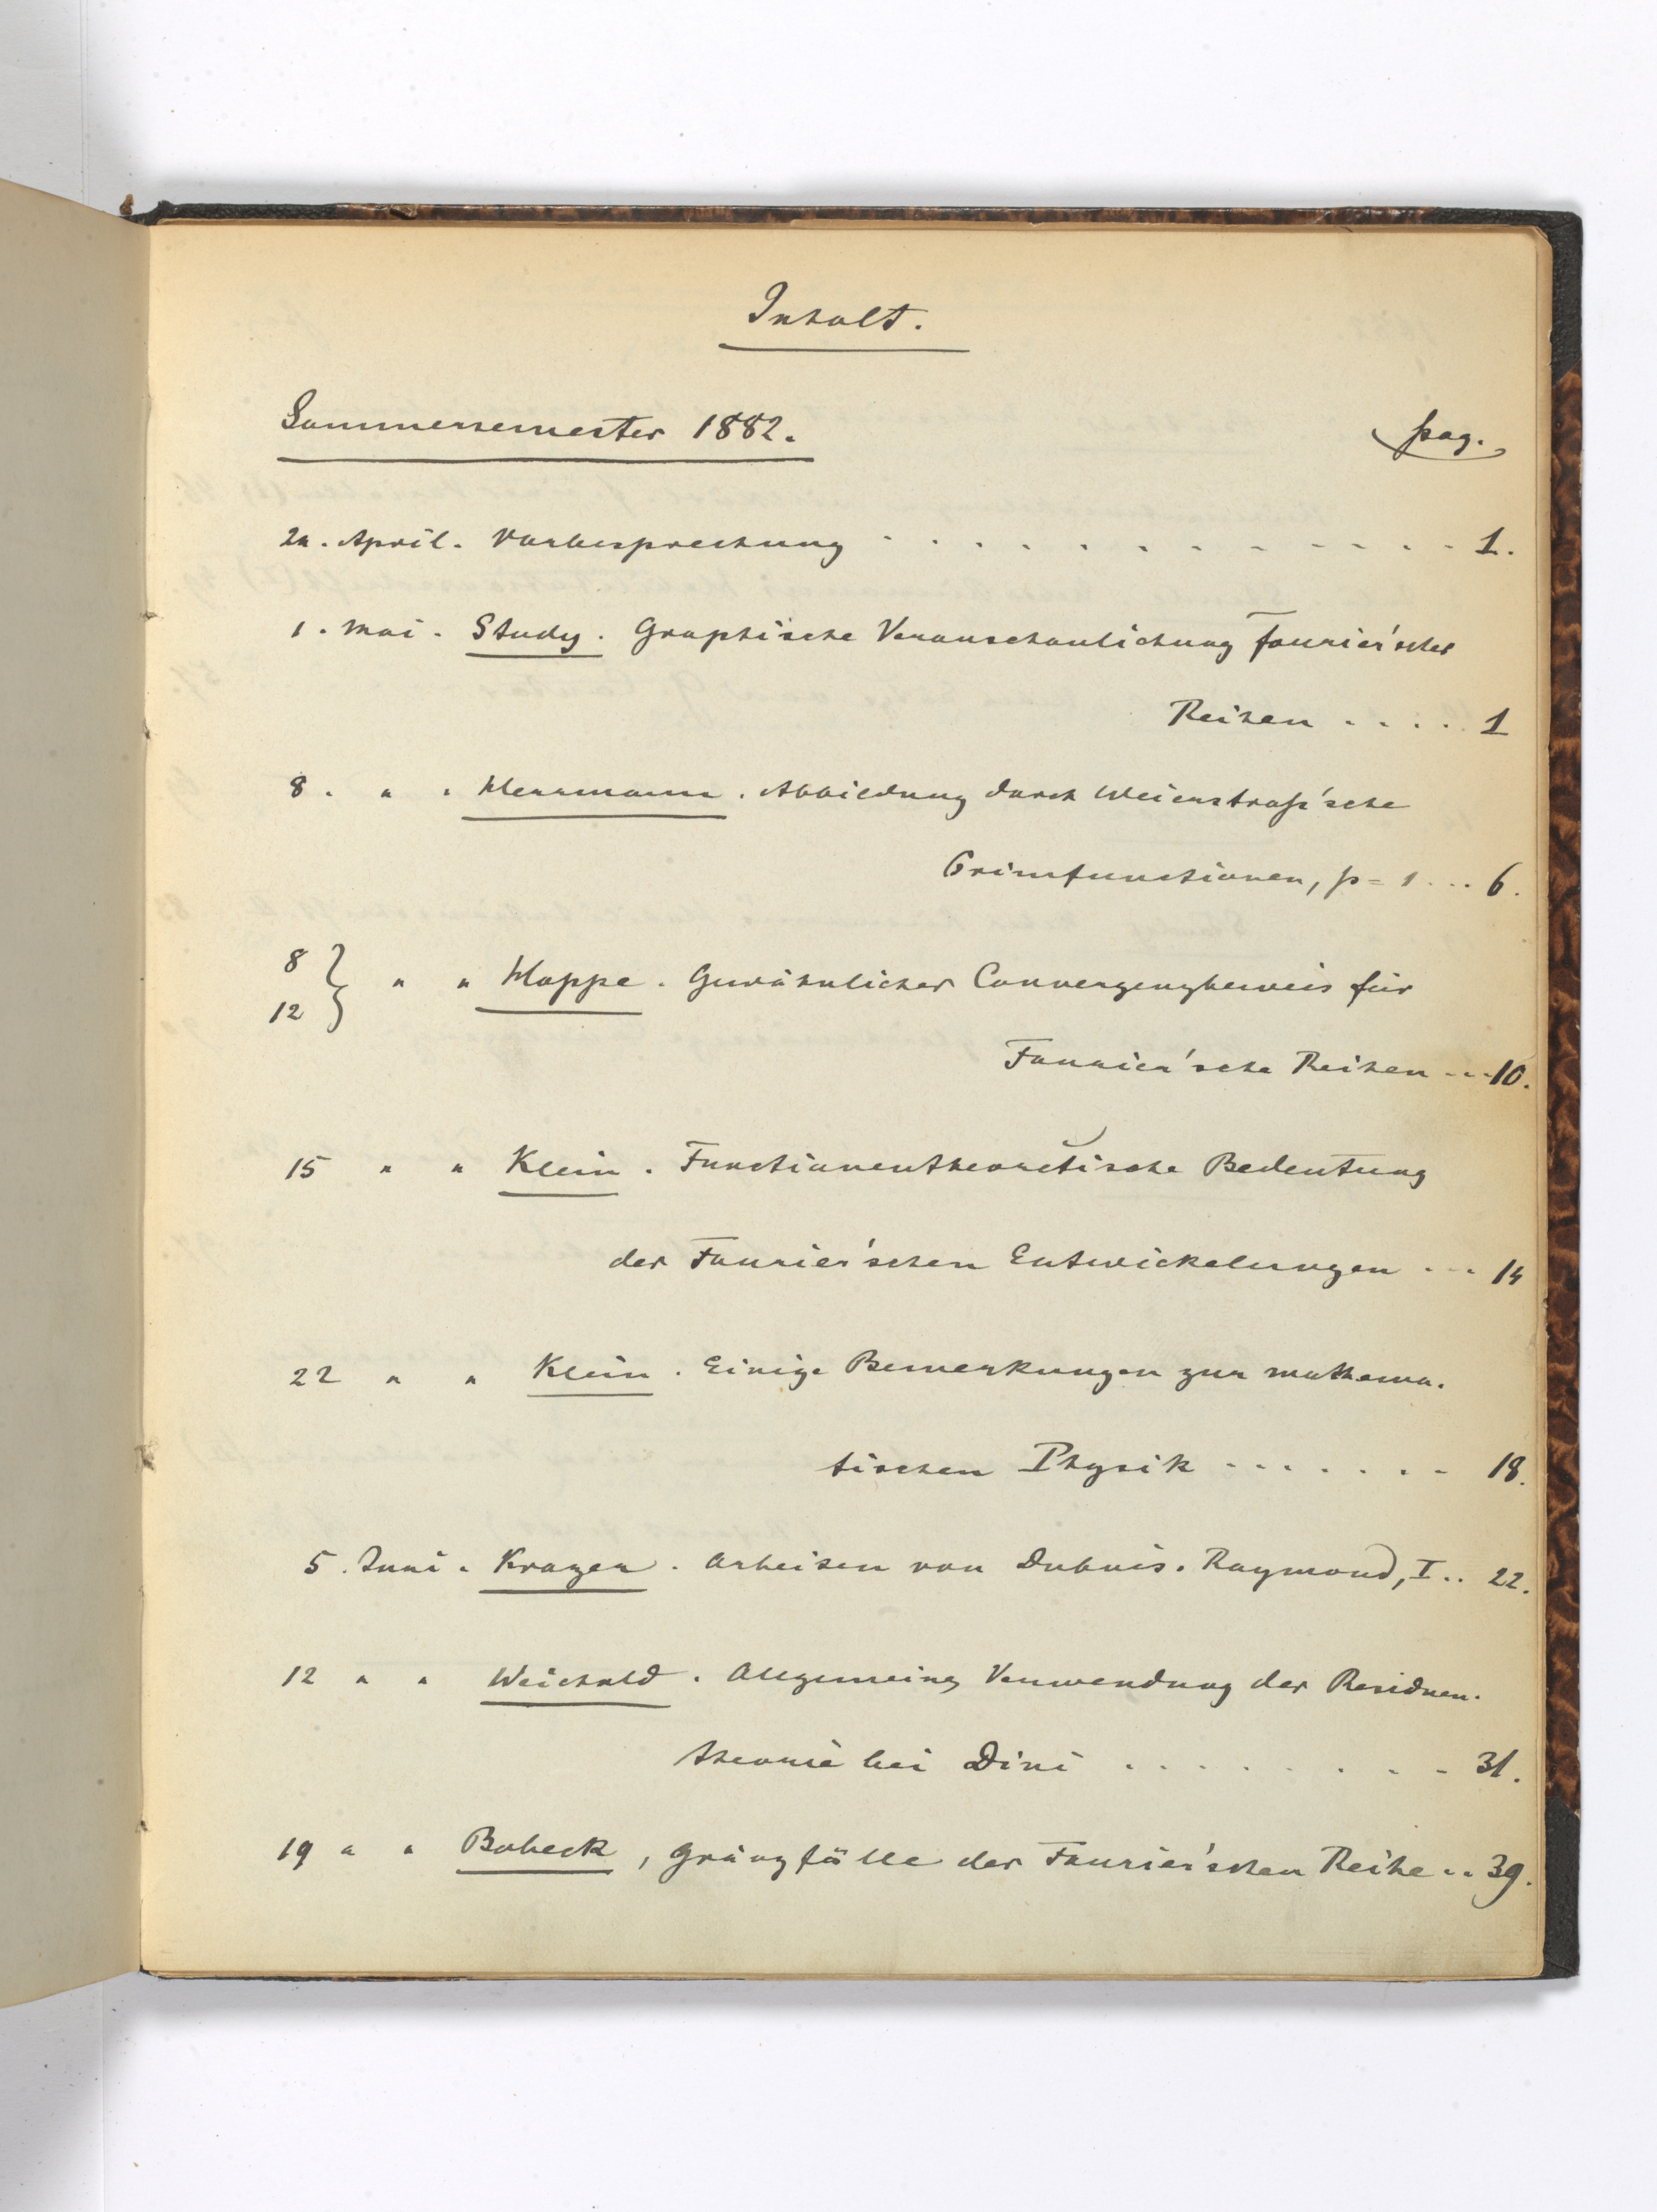 Inhalt.
Sommersemester 1882. pag.
24. April. Vorbesprechung . . . . . . . . . . . 1.
1. Mai. Study. Graphische Veranschaulichung Fourier'scher
Reihen . . . . . 1
8. " . Herrmann. Abbildung durch Weierstraß'sche
Primfunctionen, p = 1 . . . 6.
8 } " " Hoppe. Gewöhnlicher Convergenzbeweis für
12
Fourier'sche Reihen . . . 10.
15 " " Klein. Functionentheoretische Bedeutung
der Fourier'schen Entwickelungen . . . 14
22 " " Klein. Einige Bemerkungen zur mathema-
tischen Physik . . . . . . . 18.
5. Juni. Krazer. Arbeiten von Dubois-Raymond, I . . 22.
12 " " Weichold. Allgemeine Verwendung der Residuen-
theorie bei Dini . . . . . . . . 31.
19 " " Bobeck, Gränzfälle der Fourier'schen Reihe . . 39.